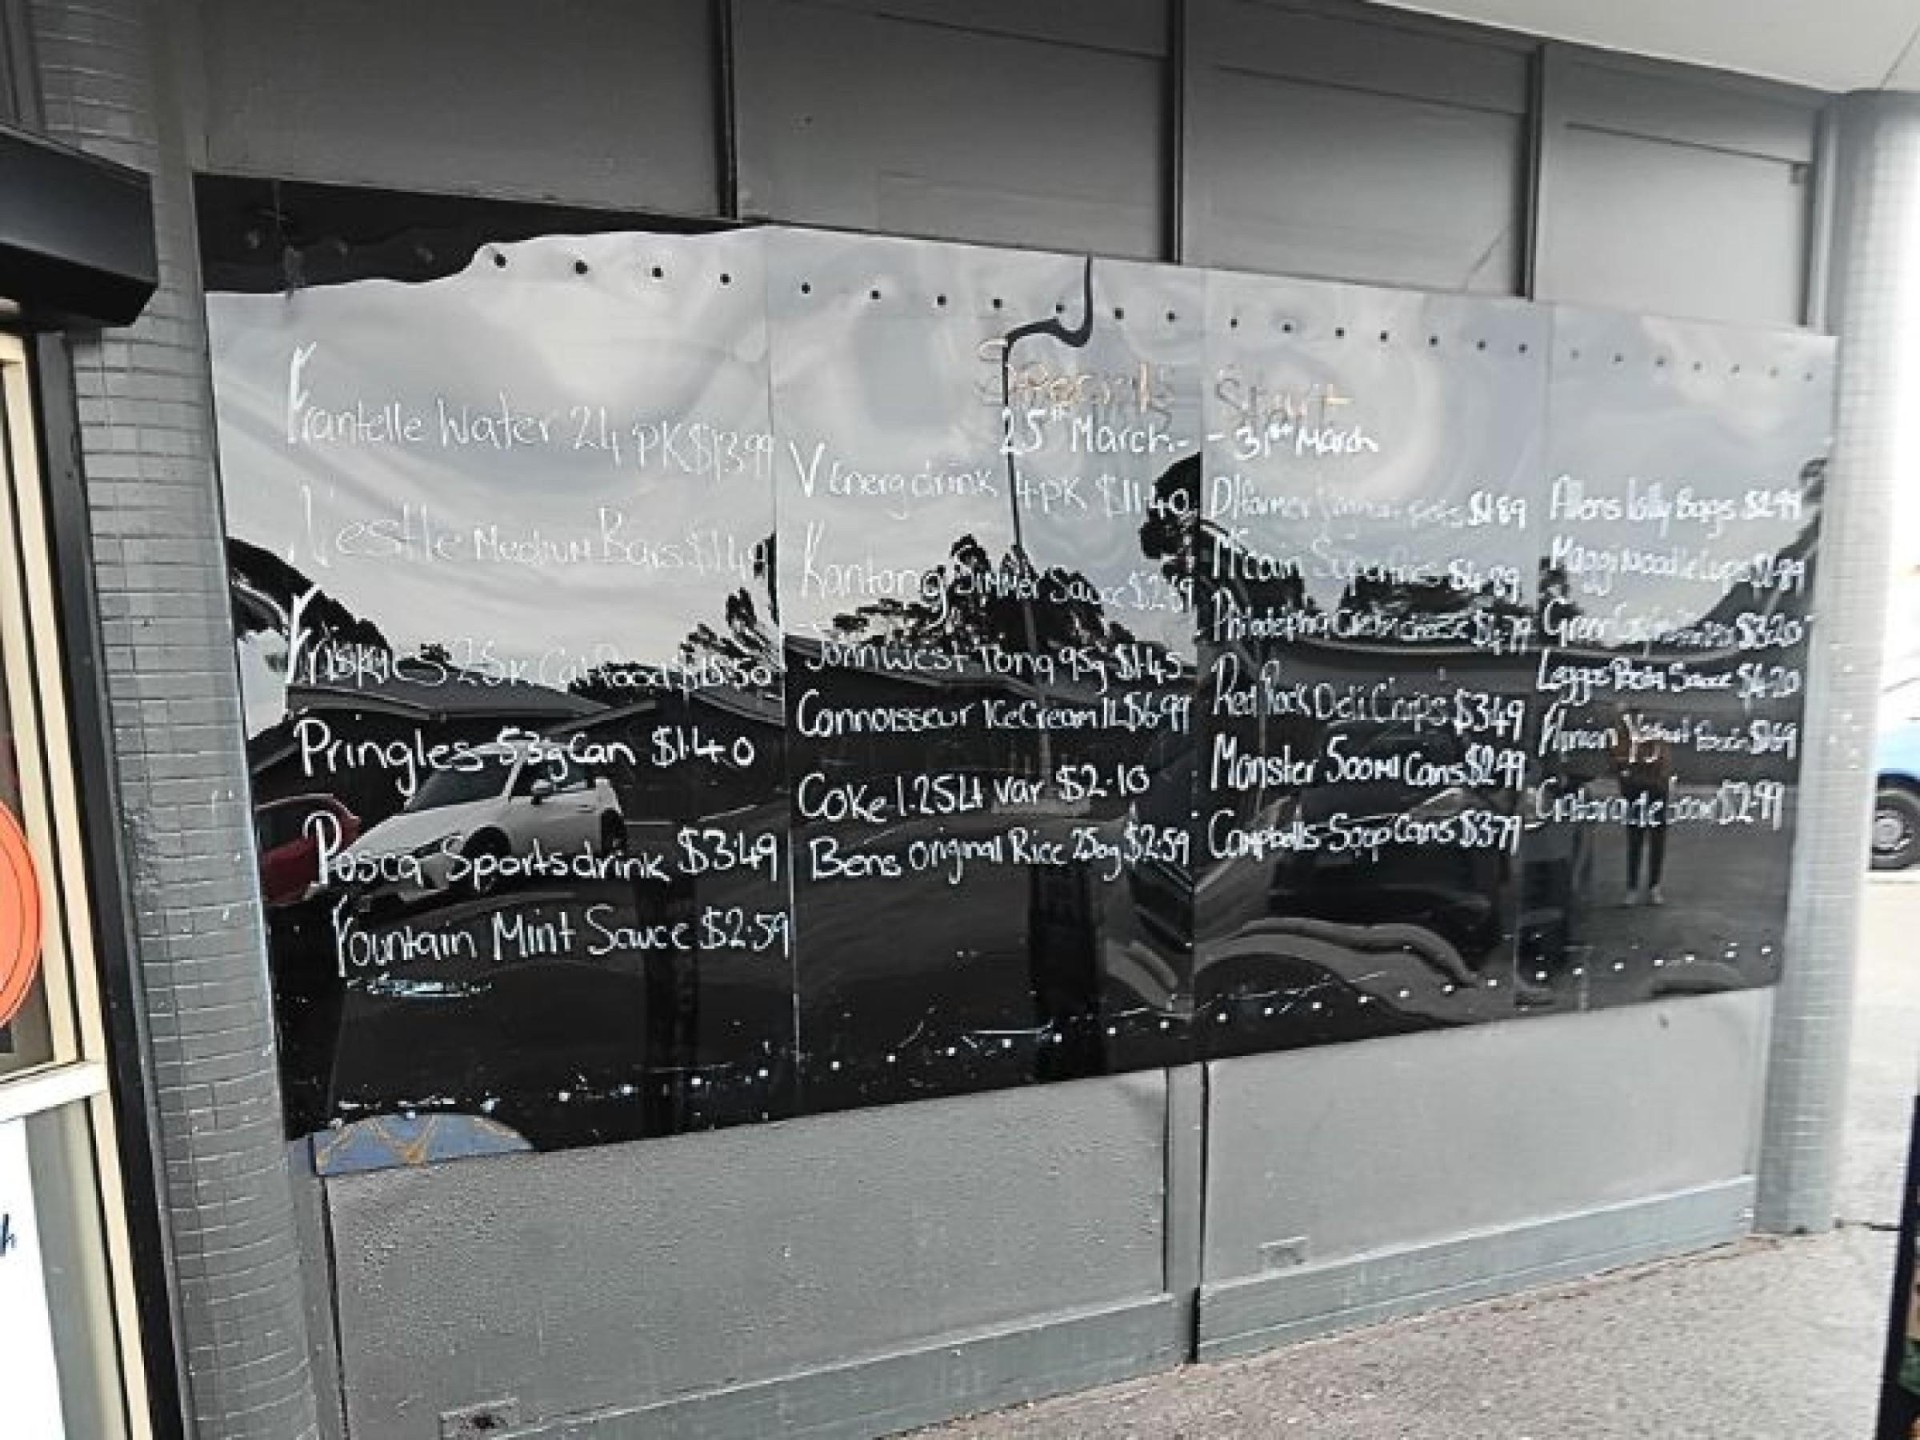 Specials Start
25th March - - 31st March
Frantelle Water 24 PK $13.99
Nestle Medium Bars $1.49
Friskies 2.5K Cat Food $15.50
Pringles 53g Can $1.40
Posca Sports drink $3.49
Fountain Mint Sauce $2.59
V Energ drink 4PK $11.40
Kantong Simmer Sauce $2.59
John West Tong 95g $1.45
Connoisseur Ice Cream 1L $6.99
Coke 1.25Lt var $2.10
Bens Original Rice 250g $2.59
D/farmers $1.89
McCain Superfries $4.89
Philadelphia Cream Cheese $4.79
Red Rock Deli Chips $3.49
Monster 500Ml Cans $2.99
Campbells Soop Cans $3.79
Allens lolly Bags $2.99
Maggi Noodle Cups $1.99
Green $3.20
Leggo Pasta Sauce $4.20
Yoghurt Pouch $1.69
Gatorade 600ml $2.99
h